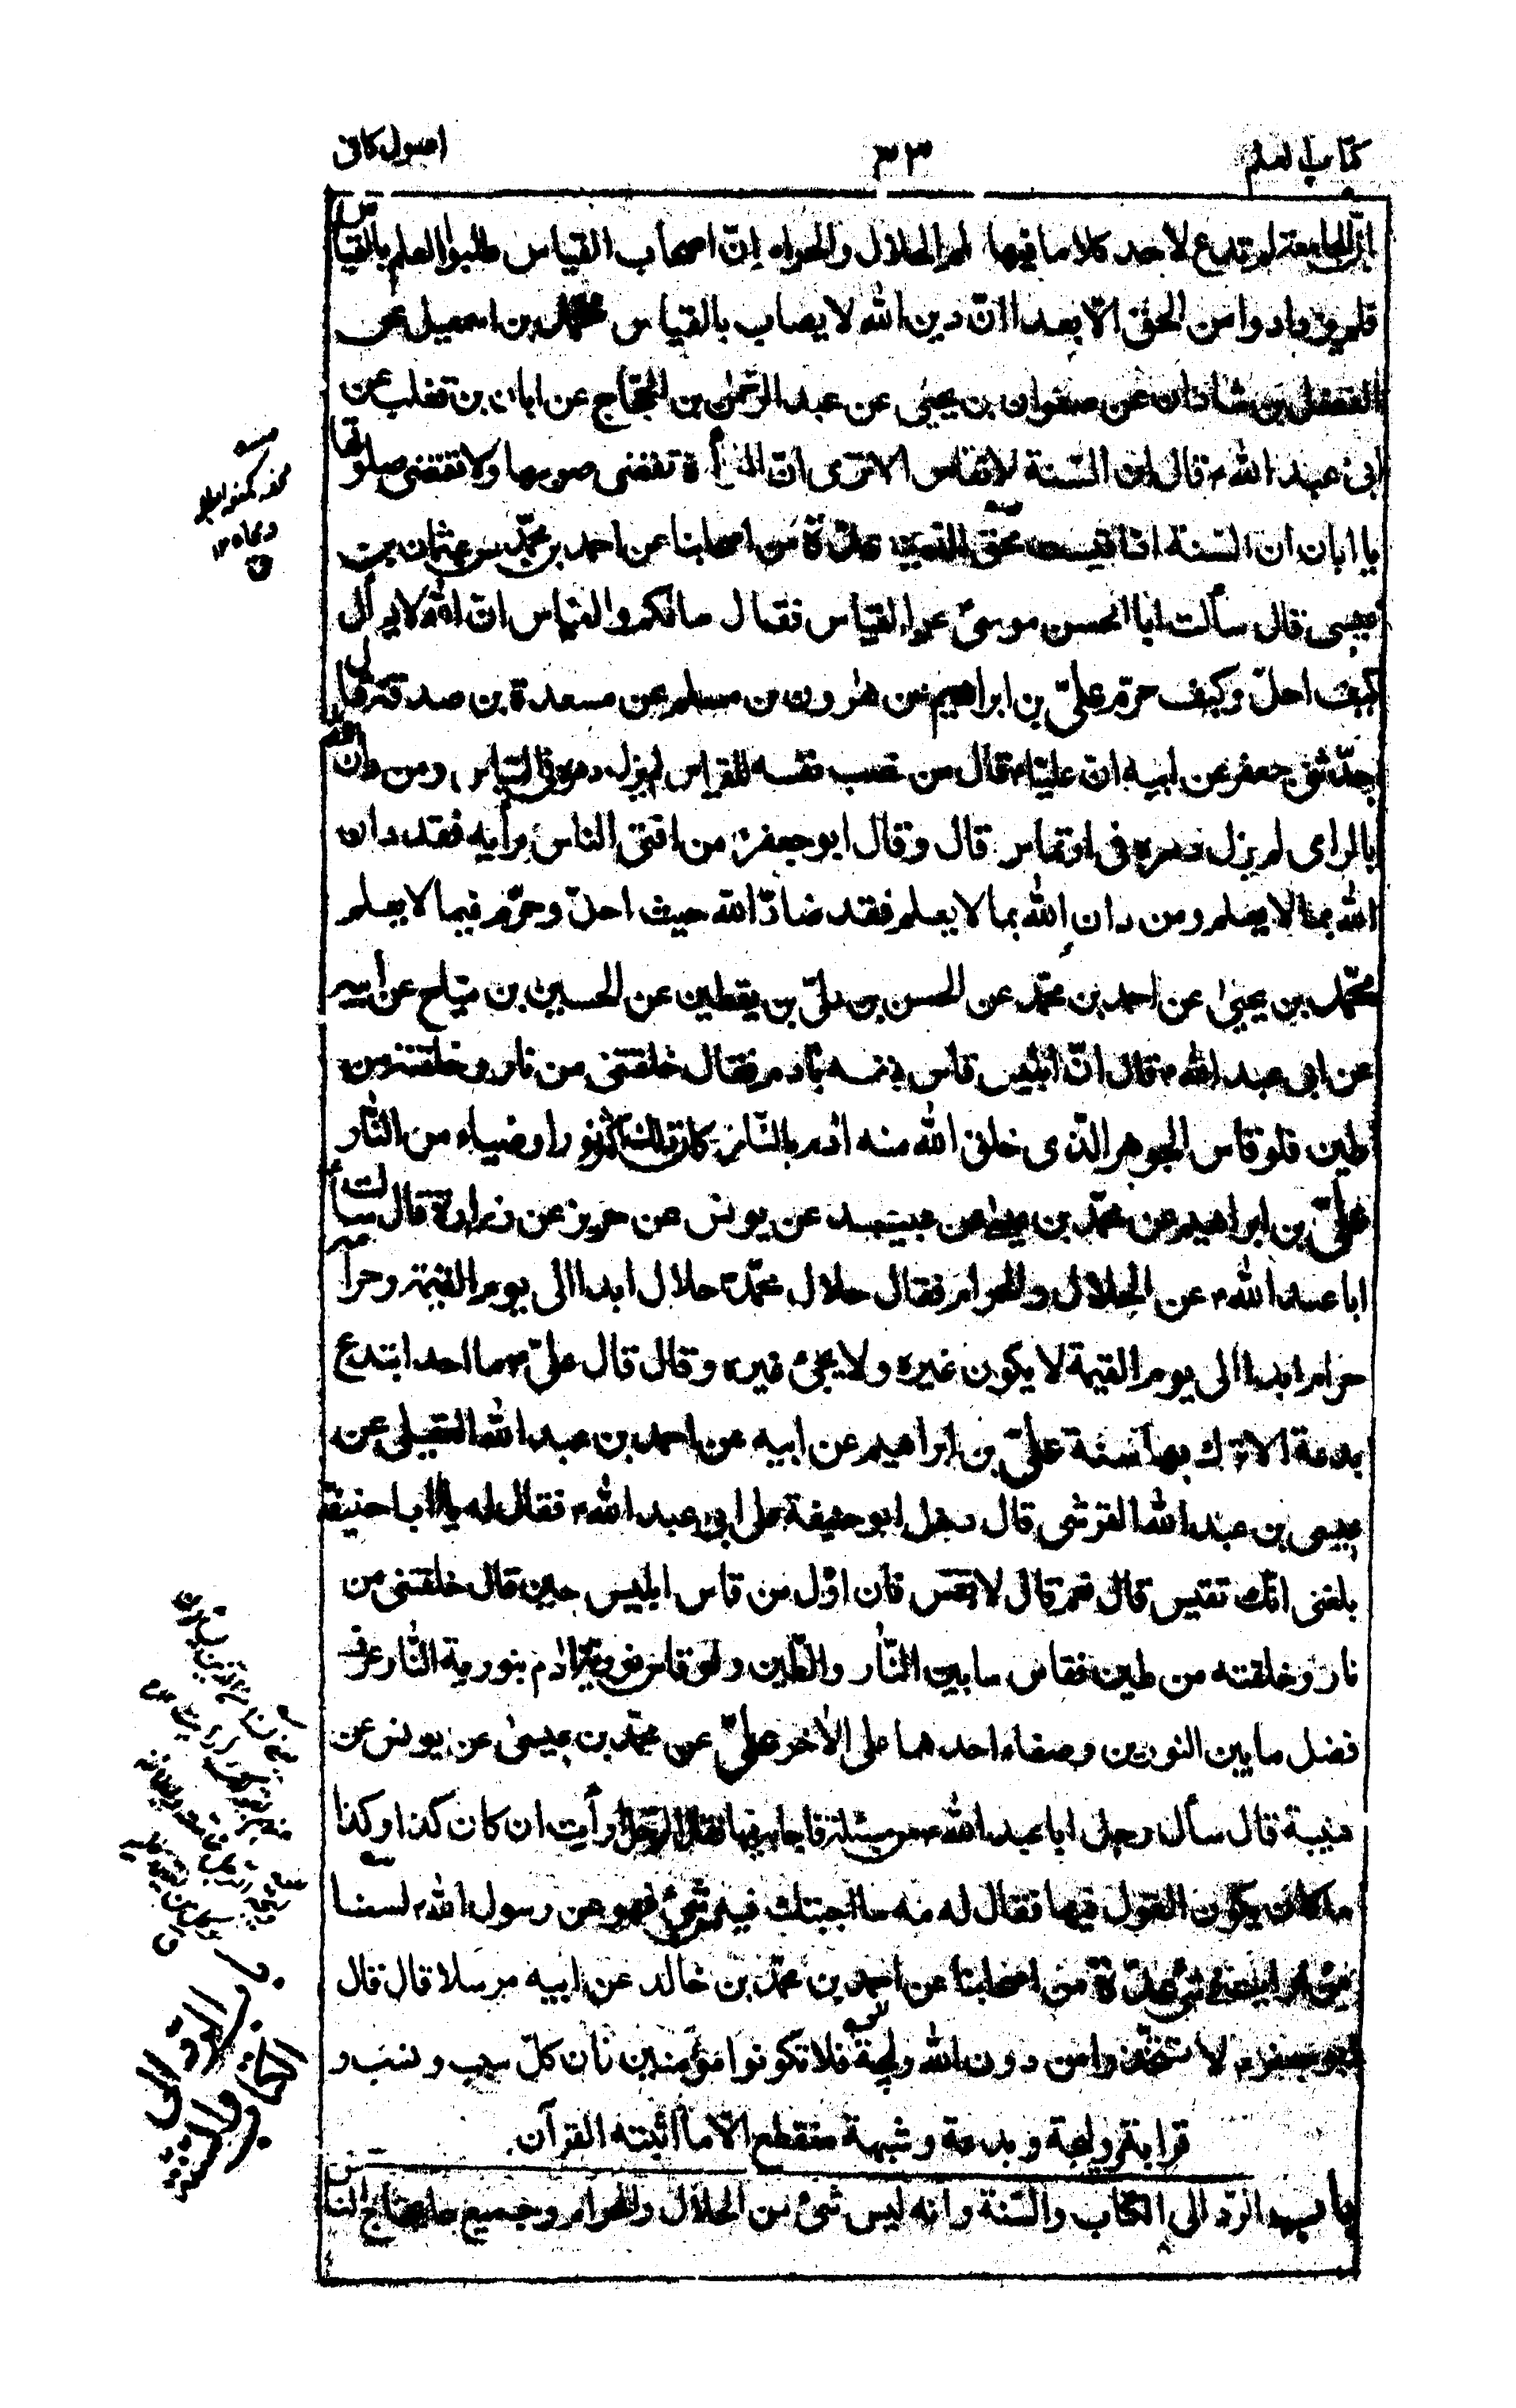 كتاب العلم
٣٣
اصول كافى
انّ الجامعة لم تدع لاحد كلاما فيها علم الحلال والحرام إنّ اصحاب القياس طلبوا العلم بالقياس
فلم يزدادوا من الحقّ الّا بعدا انّ دين الله لا يصاب بالقياس محمّد بن اسمعيل عن
الفضل بن شاذان عن صفوان بن يحيى عن عبد الرّحمٰن بن الحجّاج عن ابان بن تغلب عن
ابى عبد الله ء قال ان السّنة لا تقاس الا ترى انّ المرأة تقضى صومها ولا تقضى صلوتها
يا ابان ان السّنة اذا قيست محق الدين عدّة من اصحابنا عن احمد بن محمّد عن عثمان بن
عيسى قال سألت ابا الحسن موسىٰ عن القياس فقال مالكم والقياس انّ الله لا يسأل
كيف احلّ وكيف حرّم علىّ بن ابراهيم عن هٰرون بن مسلم عن مسعدة بن صدقة قال
حدّثنى جعفر عن ابيه ان عليّا ء قال من نصب نفسه للقياس لم يزل دهره فى التباس ومن دان الله
بالراى لم يزل دهره فى ارتماس قال وقال ابو جعفر ء من افتى الناس برأيه فقد دان
الله بما لا يعلم ومن دان الله بما لا يعلم فقد ضادّ الله حيث احلّ وحرّم فيما لا يعلم
محمّد بن يحيىٰ عن احمد بن محمّد عن الحسن بن علىّ بن يقطين عن الحسين بن ميّاح عن ابيه
عن ابى عبد الله ء قال انّ ابليس قاس نفسه بآدم فقال خلقتنى من نار وخلقته من
طين فلو قاس الجوهر الّذى خلق الله منه اٰدم بالنّار كان ذلك اكثر نورا وضياء من النّار
علىّ بن ابراهيم عن محمّد بن عيسىٰ عن عبيد عن يونس عن حريز عن زرارة قال سألت
ابا عبد الله ء عن الحلال والحرام فقال حلال محمّد ص حلال ابدا الى يوم القيمة وحرامه
حرام ابدا الى يوم القيمة لا يكون غيره ولا يجئ غيره وقال قال علىّ ء ما احد ابتدع
بدعة الا ترك بها سنة علىّ بن ابراهيم عن ابيه عن احمد بن عبد الله العقيلى عن
عيسى بن عبد الله القرشى قال دخل ابو حنيفة على ابى عبد الله ء فقال له يا ابا حنيفة
بلغنى انّك تقيس قال نعم قال لا تقس فان اوّل من قاس ابليس حين قال خلقتنى من
نار وخلقته من طين فقاس ما بين النّار والطّين ولو قاس نورية اٰدم بنورية النّار عرف
فضل ما بين النورين وصفاء احدهما على الاٰخر علىّ عن محمّد بن عيسىٰ عن يونس عن
قتيبة قال سأل رجل ابا عبد الله ء عن مسئلة فاجابه فيها فقال الرّجل ارأيت ان كان كذا وكذا
ما كان يكون القول فيها فقال له مه ما اجبتك فيه من شئ فهو عن رسول الله ء لسنا
من ارايت فى شئ عدّة من اصحابنا عن احمد بن محمّد بن خالد عن ابيه مرسلا قال قال
ابو جعفر ء لا تتّخذوا من دون الله وليجة فلا تكونوا مؤمنين فان كلّ سبب ونسب و
قرابة ووليجة وبدعة وشبهة منقطع الّا ما اثبته القرآن
باب الرّد الى الكتاب والسّنة وانه ليس شئ من الحلال والحرام وجميع ما يحتاج الناس
باب الرد الى
الكتاب والسنة